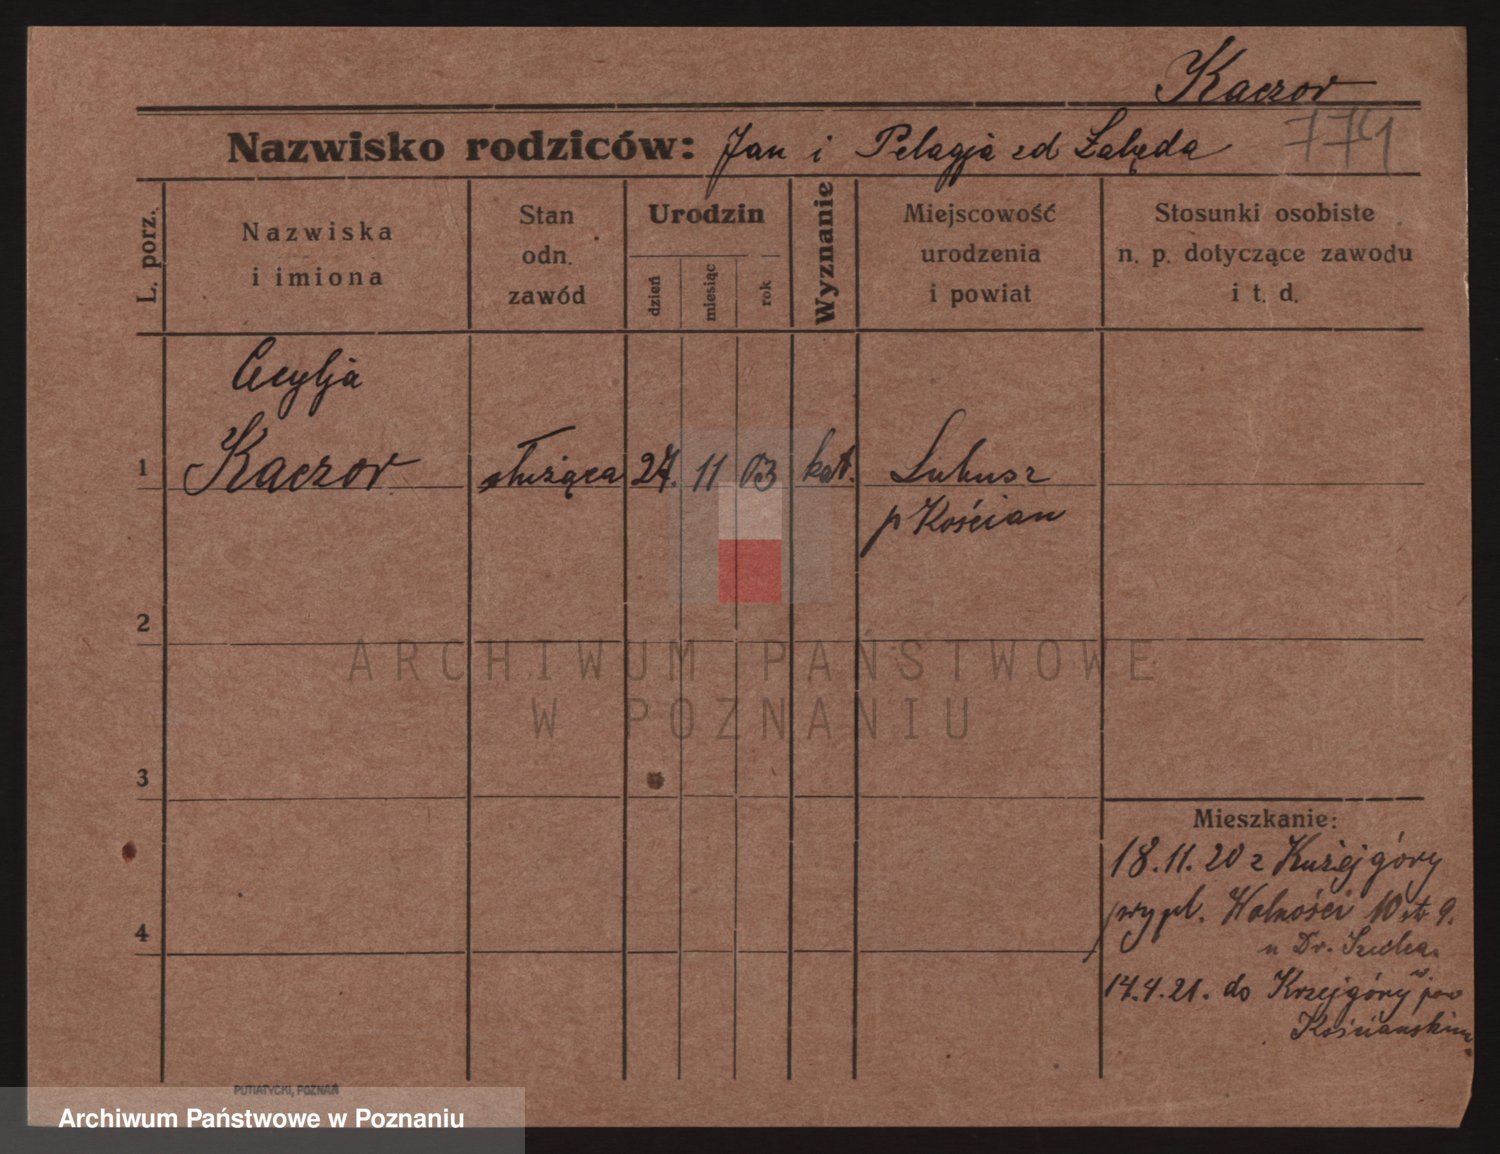 Kaczor
Nazwisko rodziców: Jan i Pelagja zd Łakęda 774
L. porz.
Nazwiska
i imiona
Stan
odn.
zawód
Urodzin
dzień
miesiąc
rok
Wyznanie
Miejscowość
urodzenia
i powiat
Stosunki osobiste
n. p. dotyczące zawodu
i t. d.
Cecylja
1 Kaczor służąca 27. 11 03 kat. Lubusz
p Kościan
2
ARCHIWUM PAŃSTWOWE
W POZNANIU
3
Mieszkanie:
18.11.20 z Kużejgóry
pl. Wolności 10 9.
u Dr.
4
14.4.21. do Krzejgóry w pow
Kościańskim
PUTIATYCKI, POZNAŃ
Archiwum Państwowe w Poznaniu